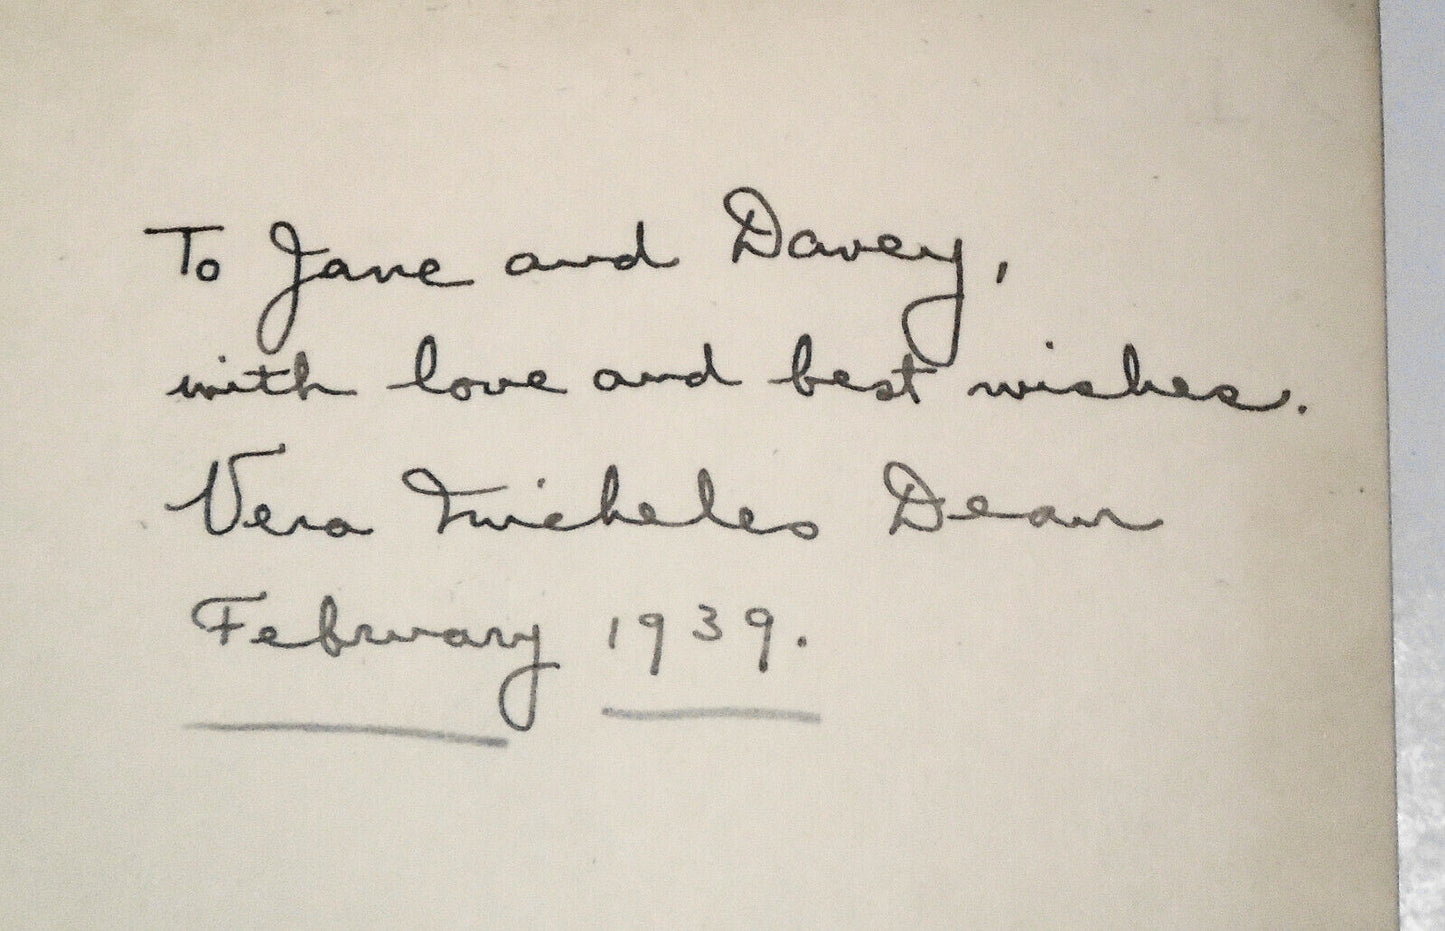 To Jane and Davey,
with love and best wishes.
Vera Micheles Dean
February 1939.